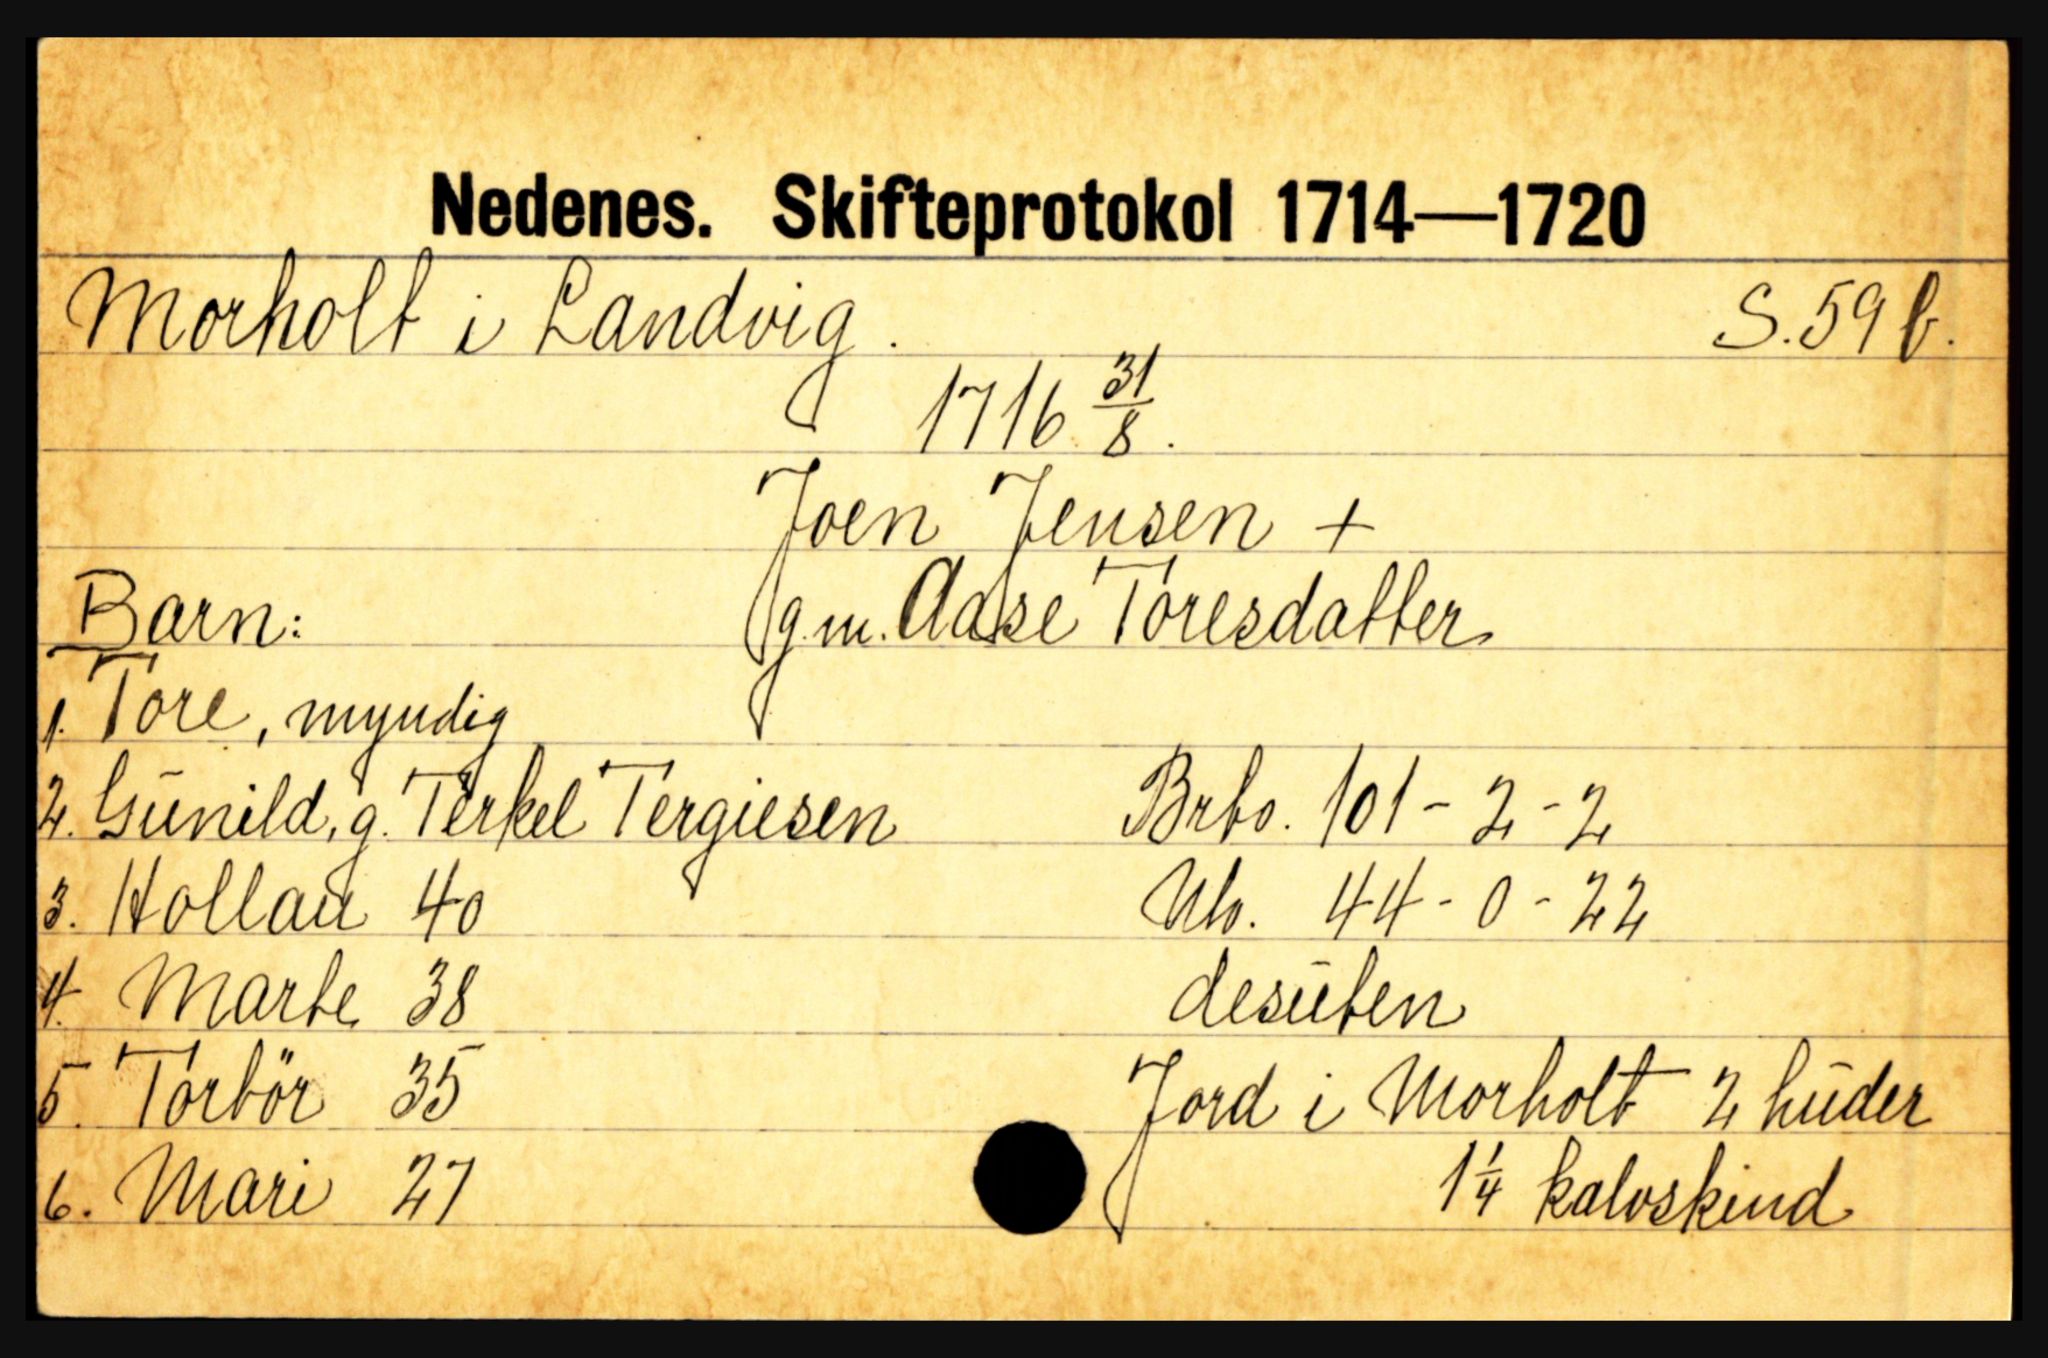 Nedenes. Skifteprotokol 1714—1720
Morholt i Landvig. S. 59 b.
1716 31/8.
Joen Jensen +
g.m. Aase Toresdatter
Barn:
1. Tore, myndig
2. Gunild, g. Terkel Tergiesen
3. Hollau 40
4. Marte 38
5. Torbör 35
6. Mari 27
Brto. 101-2-2
Nto. 44-0-22
desuten
Jord i Morholt 2 huder
1 1/4 kalvskind